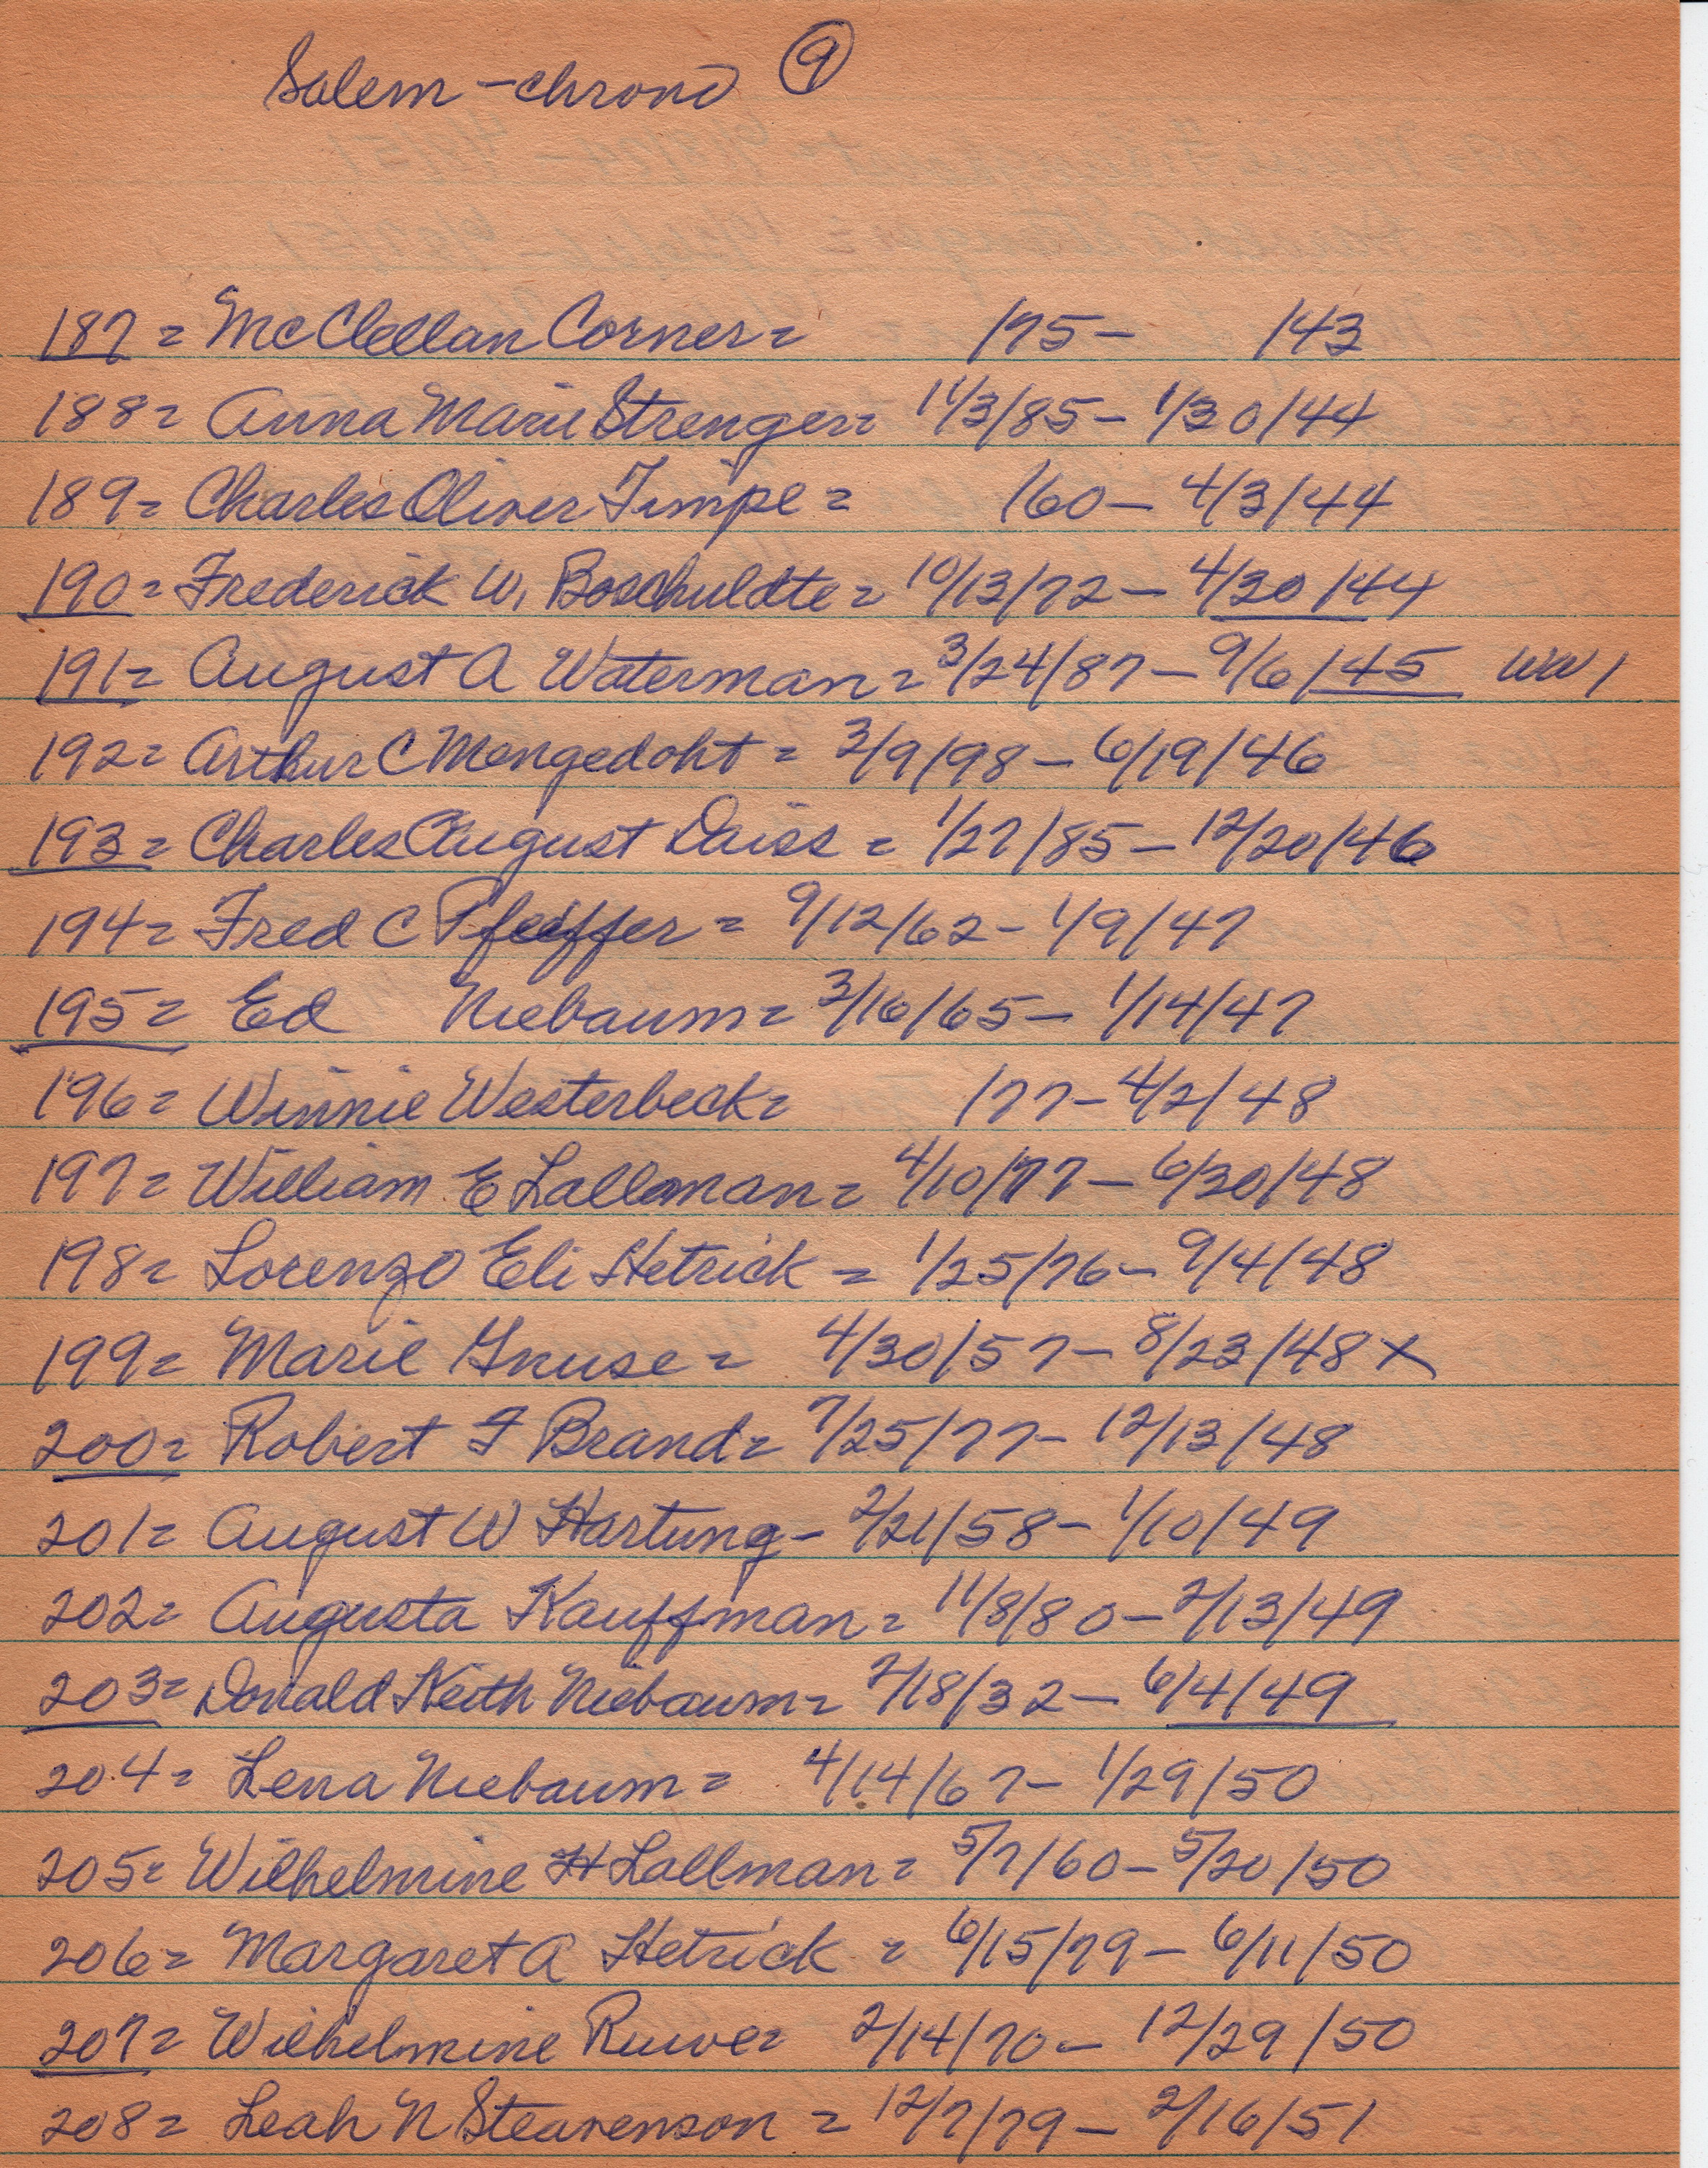 Salem - chrono 9
187 = McClellan Corner = /75 - /43
188 = Anna Marie Strenger = 11/3/85 - 1/30/44
189 = Charles Oliver Timpe = /60 - 4/3/44
190 = Frederick W. Boschuldte = 10/13/72 - 4/30/44
191 = August A Waterman = 3/24/87 - 9/6/45 WW1
192 = Arthur C Mengedoht = 3/9/98 - 6/19/46
193 = Charles August Daiss = 1/27/85 - 12/20/46
194 = Fred C Pfeiffer = 9/12/62 - 1/9/47
195 = Ed Niebaum = 3/16/65 - 1/14/47
196 = Winnie Westerbeck = /77 - 4/2/48
197 = William E Lallman = 4/10/77 - 6/30/48
198 = Lorenzo Eli Hetrick = 1/25/76 - 9/4/48
199 = Marie Gnuse = 4/30/57 - 8/23/48 X
200 = Robert F Brand = 7/25/77 - 12/13/48
201 = August W Hartung - 2/21/58 - 1/10/49
202 = Augusta Kauffman = 11/8/80 - 2/13/49
203 = Donald Keith Niebaum = 2/18/32 - 6/4/49
204 = Lena Niebaum = 4/14/67 - 1/29/50
205 = Wilhelmine H Lallman = 5/7/60 - 5/20/50
206 = Margaret A Hetrick = 6/15/79 - 6/11/50
207 = Wilhelmine Ruwe = 2/14/70 - 12/29/50
208 = Leah N Stearenson = 12/7/79 - 2/16/51